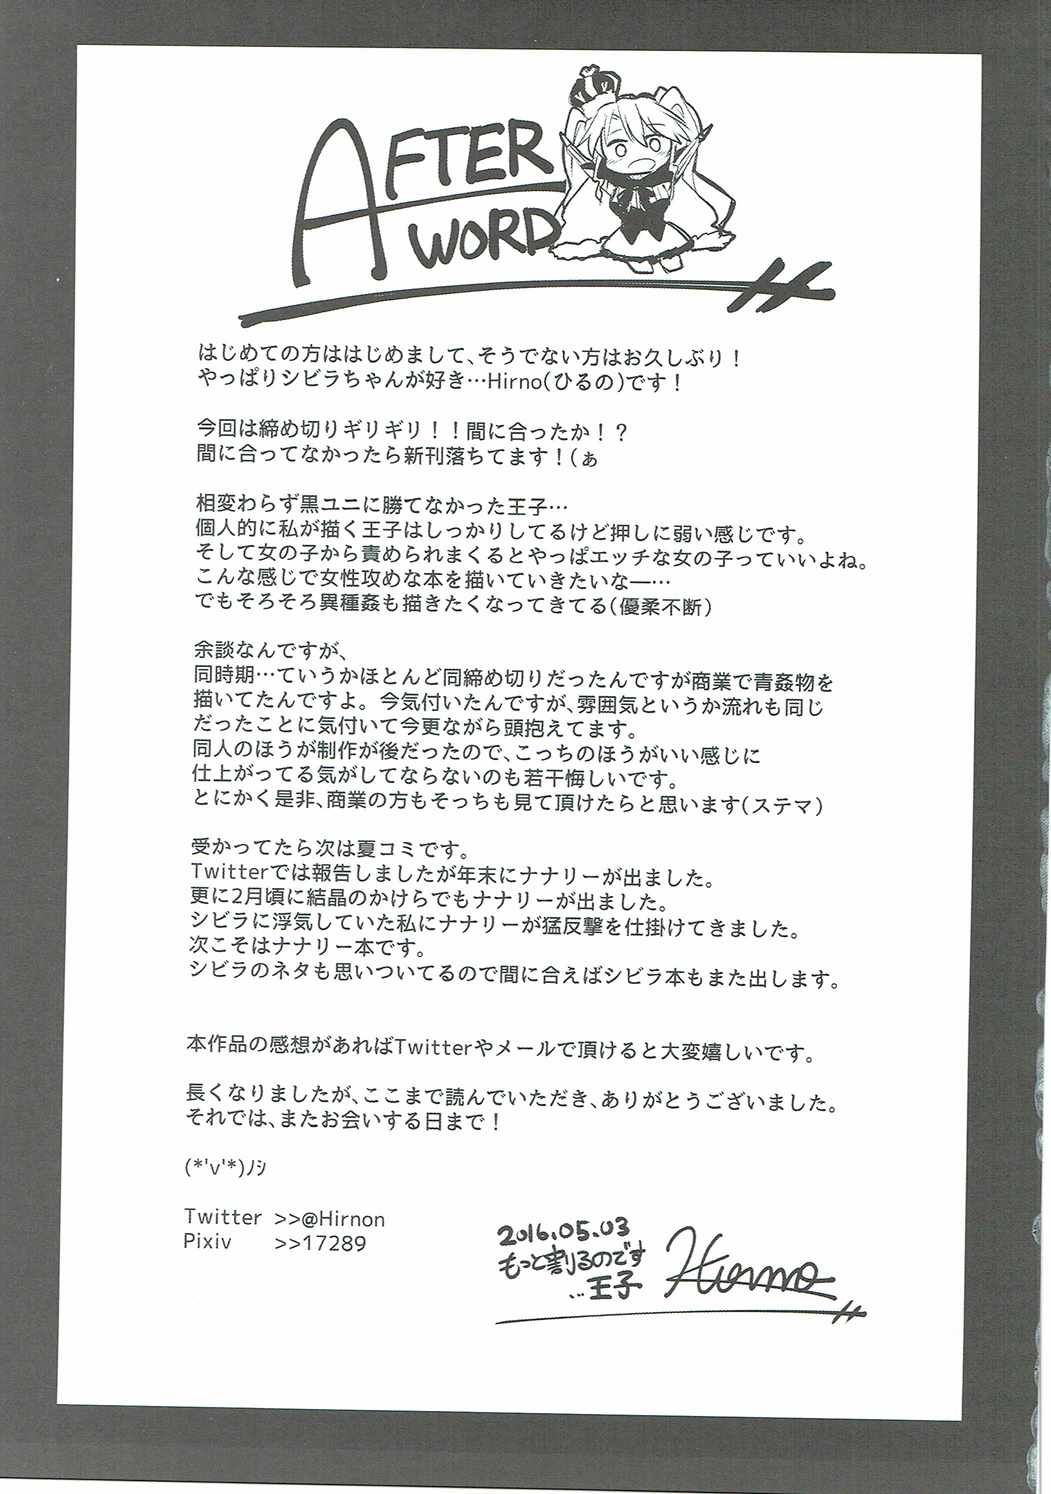 AFTER
WORD
はじめての方ははじめまして、そうでない方はお久しぶり！
やっぱりシビラちゃんが好き…Hirno(ひるの)です！
今回は締め切りギリギリ！！間に合ったか！？
間に合ってなかったら新刊落ちてます！(ぁ
相変わらず黒ユニに勝てなかった王子…
個人的に私が描く王子はしっかりしてるけど押しに弱い感じです。
そして女の子から責められまくるとやっぱエッチな女の子っていいよね。
こんな感じで女性攻めな本を描いていきたいな―…
でもそろそろ異種姦も描きたくなってきてる(優柔不断)
余談なんですが、
同時期…ていうかほとんど同締め切りだったんですが商業で青姦物を
描いてたんですよ。今気付いたんですが、雰囲気というか流れも同じ
だったことに気付いて今更ながら頭抱えてます。
同人のほうが制作が後だったので、こっちのほうがいい感じに
仕上がってる気がしてならないのも若干悔しいです。
とにかく是非、商業の方もそっちも見て頂けたらと思います(ステマ)
受かってたら次は夏コミです。
Twitterでは報告しましたが年末にナナリーが出ました。
更に2月頃に結晶のかけらでもナナリーが出ました。
シビラに浮気していた私にナナリーが猛反撃を仕掛けてきました。
次こそはナナリー本です。
シビラのネタも思いついてるので間に合えばシビラ本もまた出します。
本作品の感想があればTwitterやメールで頂けると大変嬉しいです。
長くなりましたが、ここまで読んでいただき、ありがとうございました。
それでは、またお会いする日まで！
(*'v'*)ﾉｼ
Twitter >>@Hirnon
Pixiv >>17289
2016.05.03
もっと割るのです
…王子
Hirno